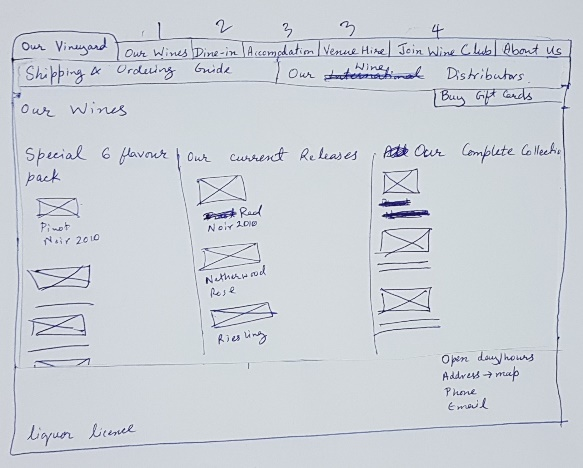 1 2 3 3 4
Our Vineyard Our Wines Dine-in Accomodation Venue Hire Join Wine Club About Us
Shipping & Ordering Guide Our Wines Distributors.
Buy Gift Cards
Our Wines
Special 6 flavour pack
Pinot
Noir 2010
Our current Releases
Red
Noir 2010
Netherwood
Rose
Riesling
Our Complete Collectio
Open day/hours
Address → map
Phone
Email
liquor licence